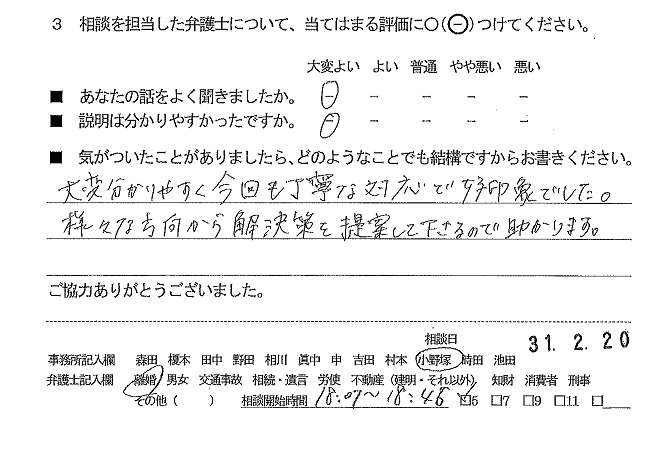 3 相談を担当した弁護士について、当てはまる評価に○(㊀)つけてください。
大変よい よい 普通 やや悪い 悪い
■ あなたの話をよく聞きましたか。 － － － － －
■ 説明は分かりやすかったですか。 － － － － －
■ 気がついたことがありましたら、どのようなことでも結構ですからお書きください。
大変分かりやすく今回も丁寧な対応で好印象でした。
様々な方向から解決策を提案して下さるので助かります。
ご協力ありがとうございました。
相談日 31.2.20
事務所記入欄 森田 榎本 田中 野田 相川 眞中 申 吉田 村本 小野塚 時田 池田
弁護士記入欄 離婚 男女 交通事故 相続・遺言 労使 不動産(建明・それ以外) 知財 消費者 刑事
その他( ) 相談開始時間 18:07～18:48 ☑5 □7 □9 □11 □